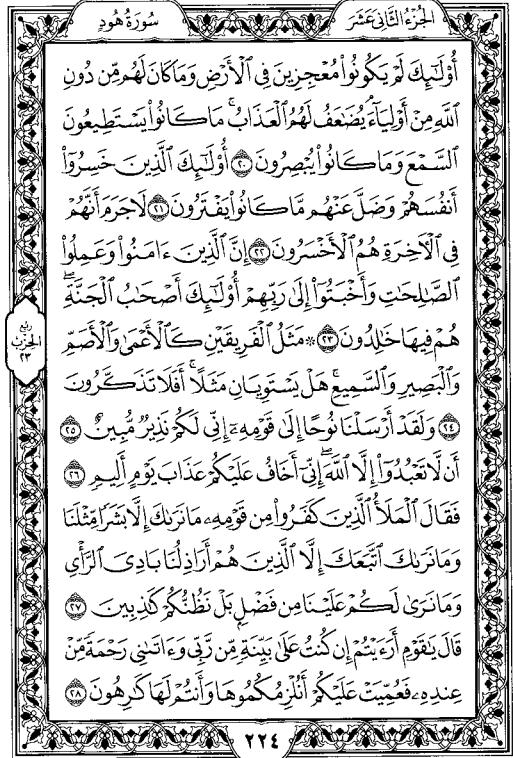 الجزء الثاني عشر
سورة هود
أُوْلَٰٓئِكَ لَمۡ يَكُونُواْ مُعۡجِزِينَ فِي ٱلۡأَرۡضِ وَمَا كَانَ لَهُم مِّن دُونِ
ٱللَّهِ مِنۡ أَوۡلِيَآءَۘ يُضَٰعَفُ لَهُمُ ٱلۡعَذَابُۚ مَا كَانُواْ يَسۡتَطِيعُونَ
ٱلسَّمۡعَ وَمَا كَانُواْ يُبۡصِرُونَ ٢٠ أُوْلَٰٓئِكَ ٱلَّذِينَ خَسِرُوٓاْ
أَنفُسَهُمۡ وَضَلَّ عَنۡهُم مَّا كَانُواْ يَفۡتَرُونَ ٢١ لَا جَرَمَ أَنَّهُمۡ
فِي ٱلۡأٓخِرَةِ هُمُ ٱلۡأَخۡسَرُونَ ٢٢ إِنَّ ٱلَّذِينَ ءَامَنُواْ وَعَمِلُواْ
ٱلصَّٰلِحَٰتِ وَأَخۡبَتُوٓاْ إِلَىٰ رَبِّهِمۡ أُوْلَٰٓئِكَ أَصۡحَٰبُ ٱلۡجَنَّةِۖ
هُمۡ فِيهَا خَٰلِدُونَ ٢٣ ۞ مَثَلُ ٱلۡفَرِيقَيۡنِ كَٱلۡأَعۡمَىٰ وَٱلۡأَصَمِّ
وَٱلۡبَصِيرِ وَٱلسَّمِيعِۚ هَلۡ يَسۡتَوِيَانِ مَثَلًاۚ أَفَلَا تَذَكَّرُونَ
٢٤ وَلَقَدۡ أَرۡسَلۡنَا نُوحًا إِلَىٰ قَوۡمِهِۦٓ إِنِّي لَكُمۡ نَذِيرٞ مُّبِينٌ ٢٥
أَن لَّا تَعۡبُدُوٓاْ إِلَّا ٱللَّهَۖ إِنِّيٓ أَخَافُ عَلَيۡكُمۡ عَذَابَ يَوۡمٍ أَلِيمٖ ٢٦
فَقَالَ ٱلۡمَلَأُ ٱلَّذِينَ كَفَرُواْ مِن قَوۡمِهِۦ مَا نَرَىٰكَ إِلَّا بَشَرٗا مِّثۡلَنَا
وَمَا نَرَىٰكَ ٱتَّبَعَكَ إِلَّا ٱلَّذِينَ هُمۡ أَرَاذِلُنَا بَادِيَ ٱلرَّأۡيِ
وَمَا نَرَىٰ لَكُمۡ عَلَيۡنَا مِن فَضۡلِۭ بَلۡ نَظُنُّكُمۡ كَٰذِبِينَ ٢٧
قَالَ يَٰقَوۡمِ أَرَءَيۡتُمۡ إِن كُنتُ عَلَىٰ بَيِّنَةٖ مِّن رَّبِّي وَءَاتَىٰنِي رَحۡمَةٗ مِّنۡ
عِندِهِۦ فَعُمِّيَتۡ عَلَيۡكُمۡ أَنُلۡزِمُكُمُوهَا وَأَنتُمۡ لَهَا كَٰرِهُونَ ٢٨
ربع
الحزب
٢٣
٢٢٤